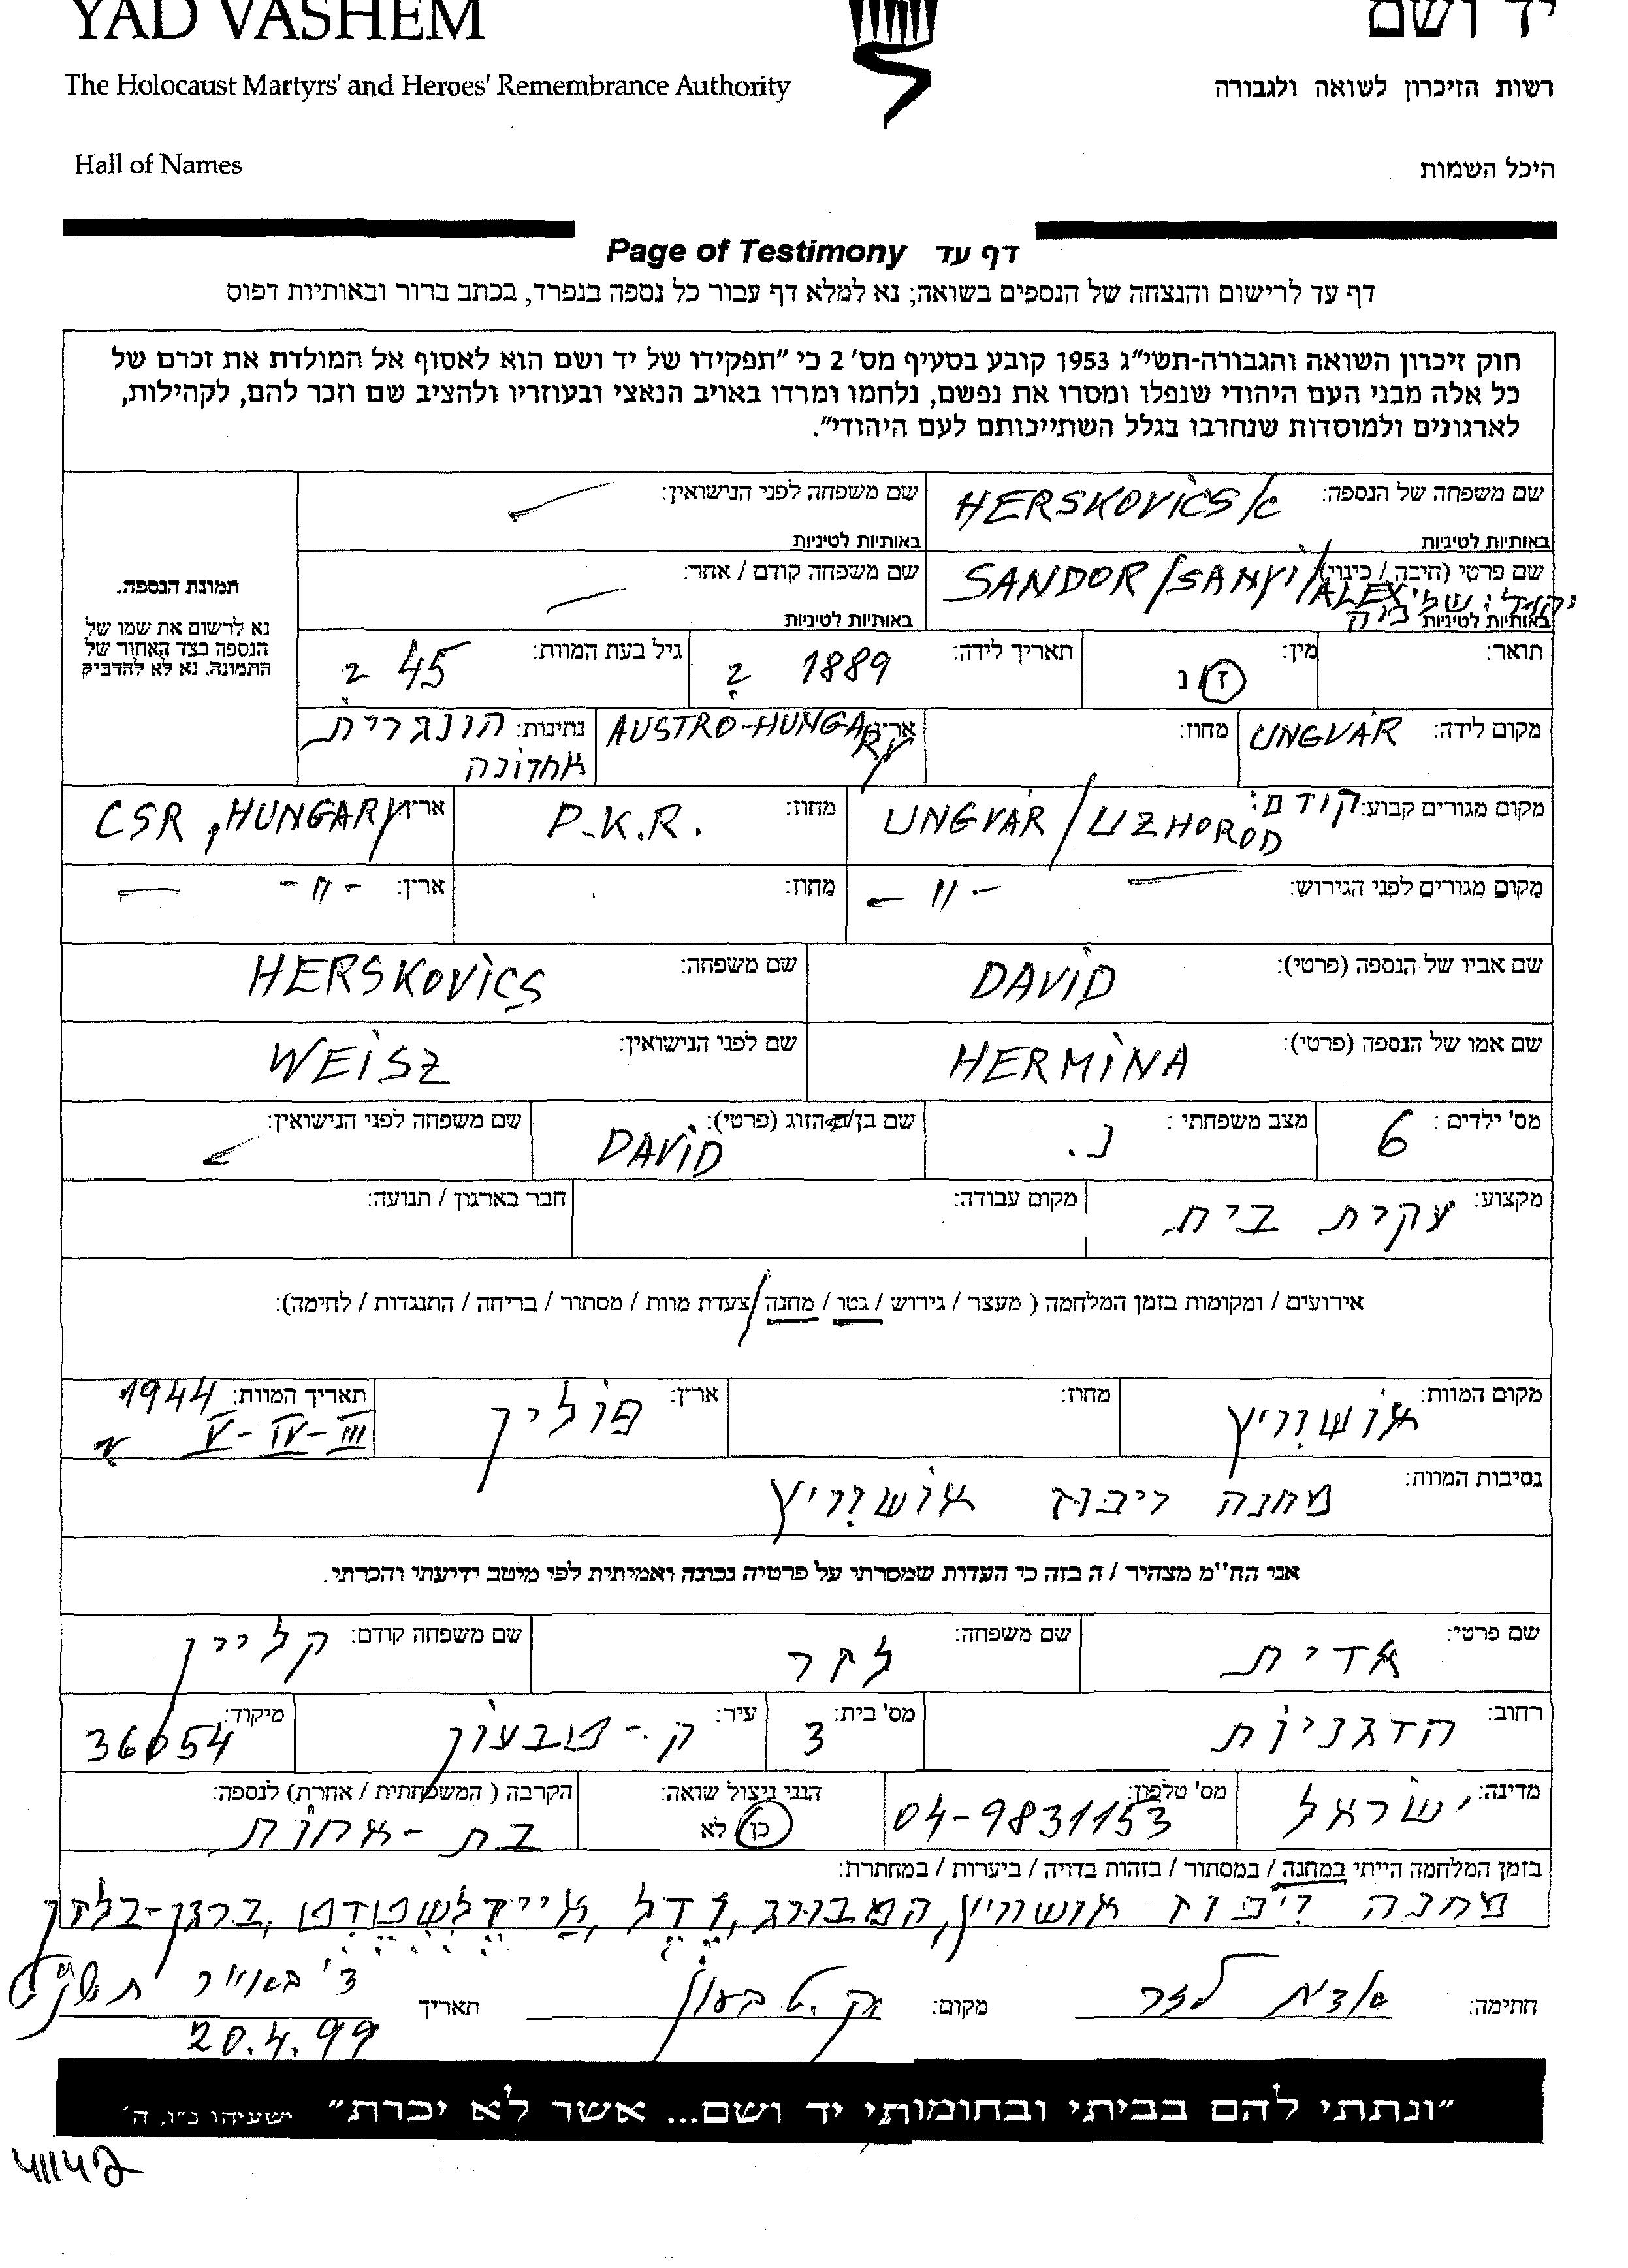 YAD VASHEM
יד ושם
The Holocaust Martyrs' and Heroes' Remembrance Authority
רשות הזיכרון לשואה ולגבורה
Hall of Names
היכל השמות
Page of Testimony דף עד
דף עד לרישום והנצחה של הנספים בשואה; נא למלא דף עבור כל נספה בנפרד, בכתב ברור ובאותיות דפוס
חוק זיכרון השואה והגבורה-תשי"ג 1953 קובע בסעיף מס' 2 כי "תפקידו של יד ושם הוא לאסוף אל המולדת את זכרם של
כל אלה מבני העם היהודי שנפלו ומסרו את נפשם, נלחמו ומרדו באויב הנאצי ובעוזריו ולהציב שם וזכר להם, לקהילות,
לארגונים ולמוסדות שנחרבו בגלל השתייכותם לעם היהודי".
שם משפחה של הנספה: HERSKOVICS
באותיות לטיניות
שם משפחה לפני הנישואין:
באותיות לטיניות
שם פרטי (חיבה / כינוי): SANDOR/SANYI/ALEX
באותיות לטיניות
שם משפחה קודם / אחר:
באותיות לטיניות
תמונת הנספה.
נא לרשום את שמו של
הנספה בצד האחור של
התמונה. נא לא להדביק
תואר: מין: ז נ תאריך לידה: 1889 ? גיל בעת המוות: 45 ?
מקום לידה: UNGVÁR מחוז: ארץ: AUSTRO-HUNGARY נתינות: הונגרית
אחרונה
מקום מגורים קבוע: קודם: UNGVÁR/UZHOROD מחוז: P.K.R. ארץ: CSR, HUNGARY
מקום מגורים לפני הגירוש: -11- מחוז: ארץ: -11-
שם אביו של הנספה (פרטי): DAVID שם משפחה: HERSKOVICS
שם אמו של הנספה (פרטי): HERMINA שם לפני הנישואין: WEISZ
מס' ילדים: 6 מצב משפחתי: נ. שם בן/ת הזוג (פרטי): DAVID שם משפחה לפני הנישואין:
מקצוע: עקרת בית מקום עבודה: חבר בארגון / תנועה:
אירועים / ומקומות בזמן המלחמה ( מעצר / גירוש / גטו / מחנה / צעדת מוות / מסתור / בריחה / התנגדות / לחימה):
מקום המוות: אושוויץ מחוז: ארץ: פולין תאריך המוות: 1944
III-IV-V ?
נסיבות המוות: מחנה ריכוז אושוויץ
אני הח"מ מצהיר / ה בזה כי העדות שמסרתי על פרטיה נכונה ואמיתית לפי מיטב ידיעתי והכרתי.
שם פרטי: אדית שם משפחה: לזר שם משפחה קודם: קליין
רחוב: הדגניות מס' בית: 3 עיר: ק.-טבעון מיקוד: 36054
מדינה: ישראל מס' טלפון: 04-9831153 הנני ניצול שואה: כן לא הקרבה ( המשפחתית / אחרת) לנספה: בת-אחות
בזמן המלחמה הייתי במחנה / במסתור / בזהות בדויה / ביערות / במחתרת:
מחנה ריכוז אושוויץ, המבורג, ודל, איידלשטדט, ברגן-בלזן
חתימה: אדית לזר מקום: ק. טבעון תאריך ד' באייר תשנ"ט
20.4.99
"ונתתי להם בביתי ובחומותי יד ושם... אשר לא יכרת" ישעיהו נ"ו, ה'